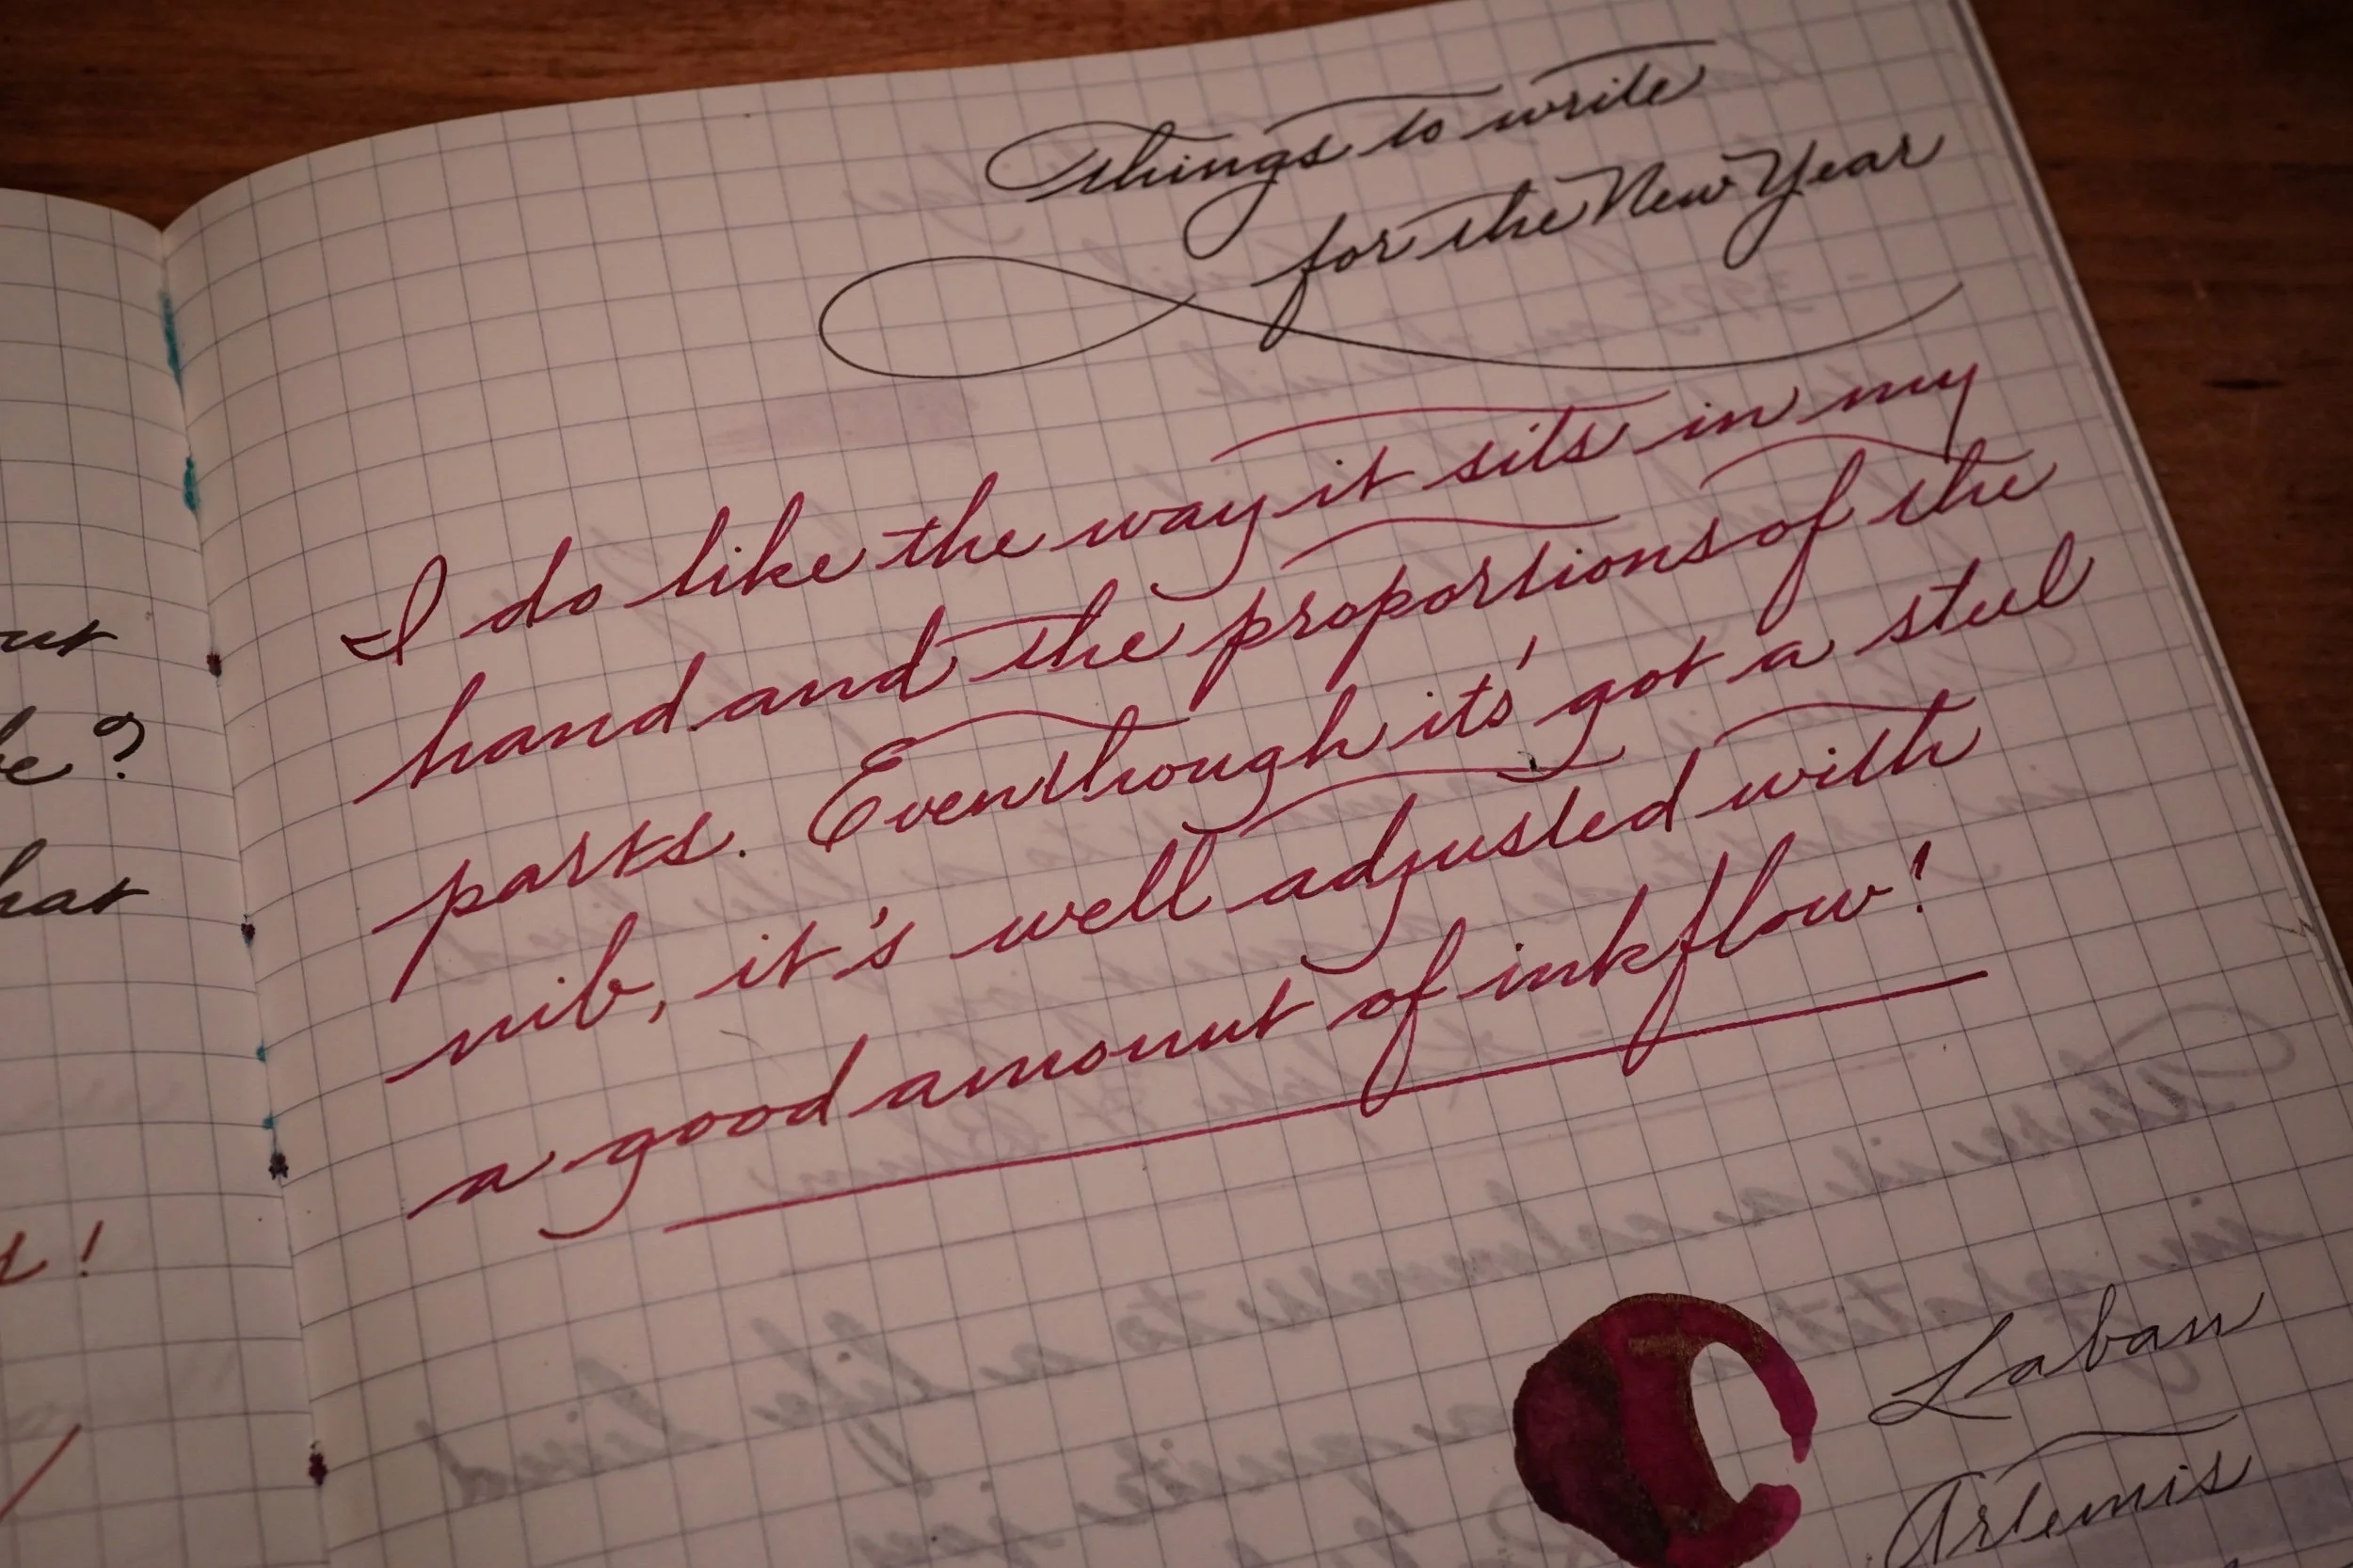 Things to write
for the New Year
I do like the way it sits in my
hand and the proportions of the
parts. Eventhough its' got a steel
nib, it's well adjusted with
a good amount of inkflow!
Laban
Artemis
?
!